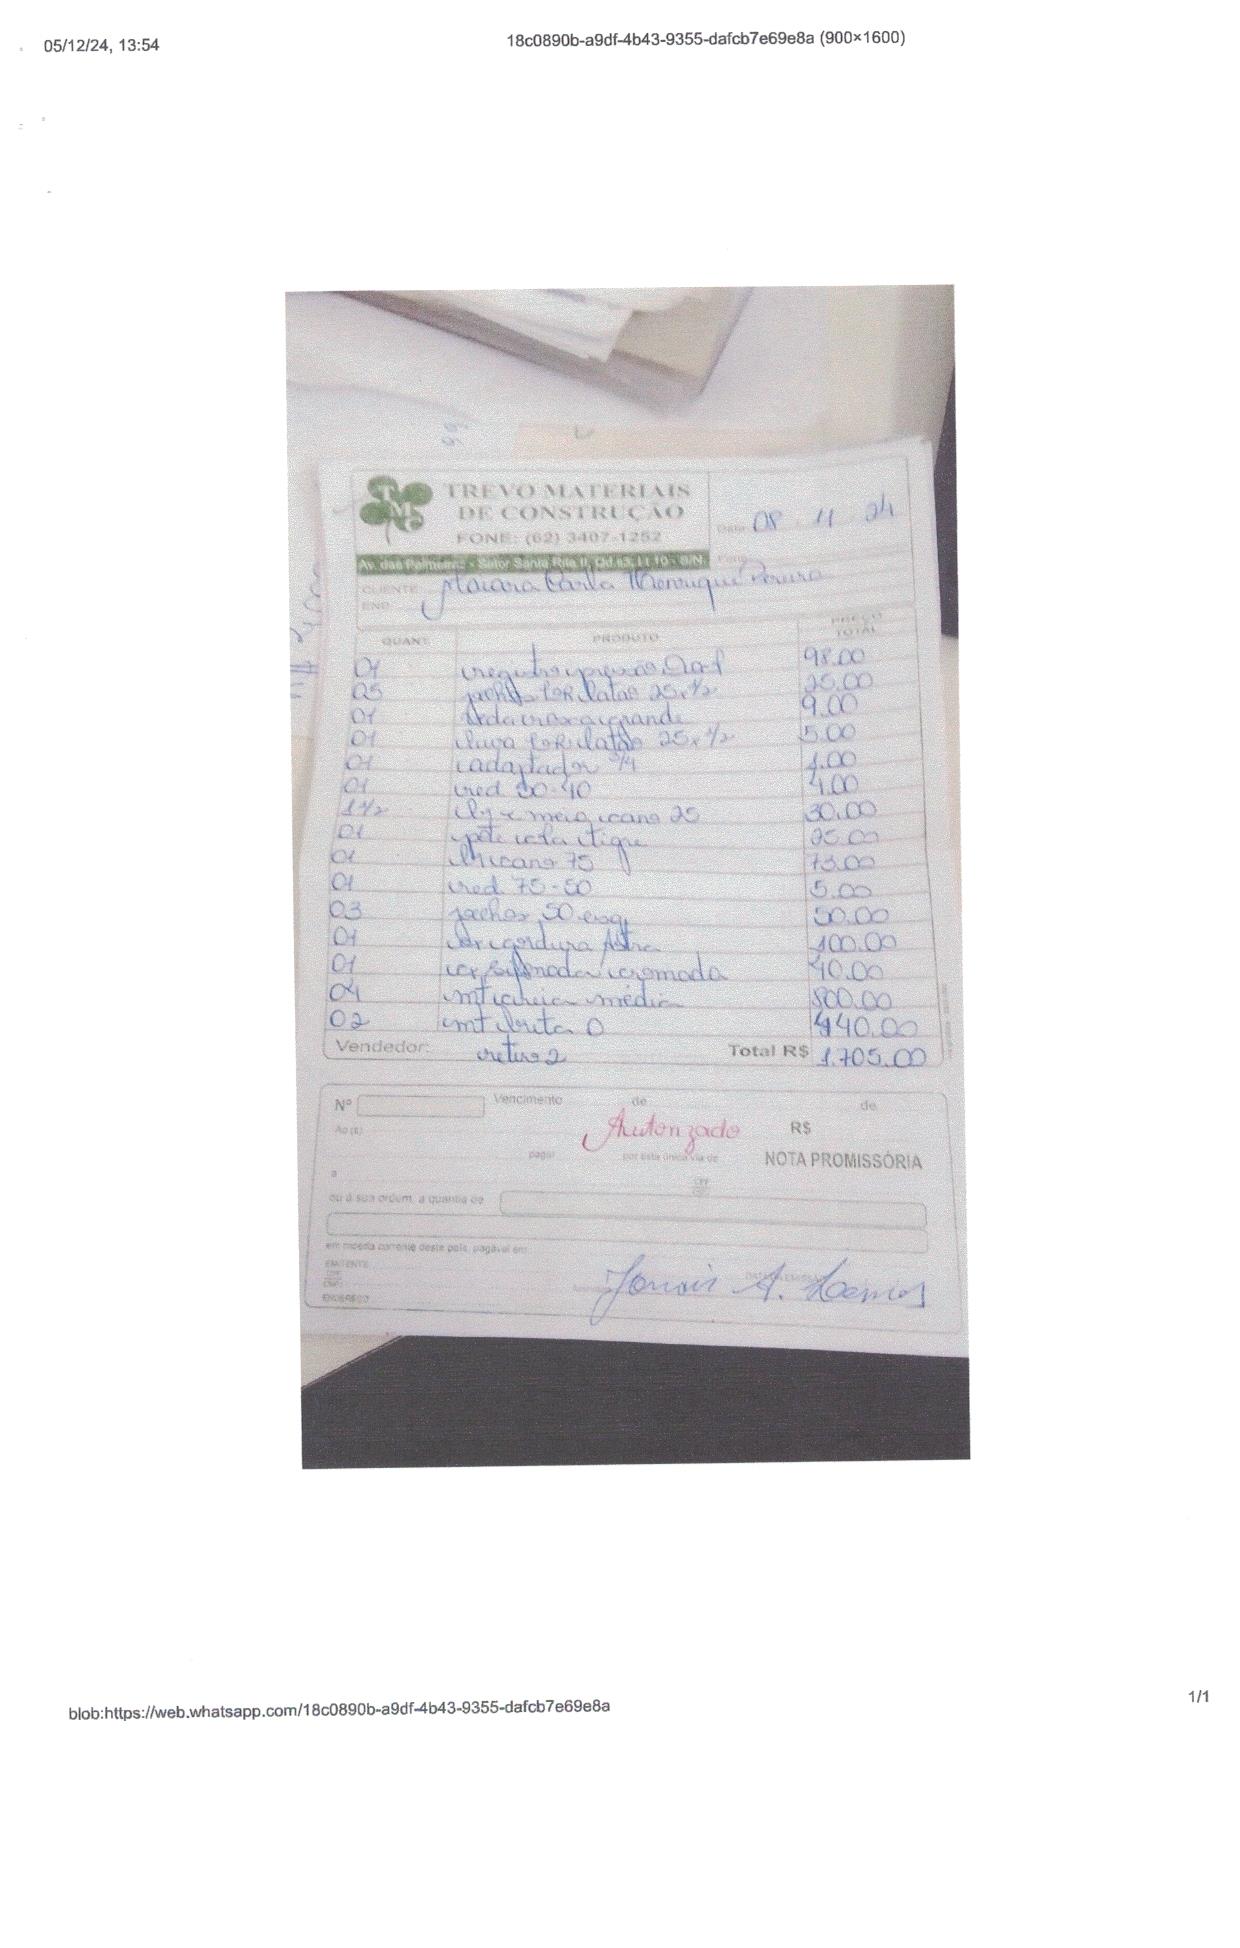 05/12/24, 13:54
18c0890b-a9df-4b43-9355-dafcb7e69e8a (900×1600)
TMC
TREVO MATERIAIS
DE CONSTRUÇÃO
FONE: (62) 3407-1252
Data 08 11 24
Av. das Palmeiras - Setor Santa Rita II, Qd 63, Lt 10 - S/N
CLIENTE Carla Henrique Pereira
END
QUANT. PRODUTO PREÇO TOTAL
01 registro pressão 98.00
05 joelho LR latão 25x1/2 25.00
01 veda rosca grande 9.00
01 luva LR latão 25x1/2 5.00
01 adaptador 3/4 1.00
01 red 50-40 4.00
1 1/2 e meio cano 25 30.00
01 pote cola tigre 25.00
01 cano 75 75.00
01 red 75-50 5.00
03 joelhos 50 esg
01 gordura 100.00
01 cx sifonada cromada 40.00
04 mt areia média 800.00
02 mt brita 0 440.00
Vendedor: retiro 2 Total R$ 1.705.00
Nº Vencimento de de
Autorizado R$
Ao(s)
pagar por esta única via de NOTA PROMISSÓRIA
a
ou à sua ordem, a quantia de
em moeda corrente deste país, pagável em
EMITENTE
ENDEREÇO
A.
blob:https://web.whatsapp.com/18c0890b-a9df-4b43-9355-dafcb7e69e8a
1/1